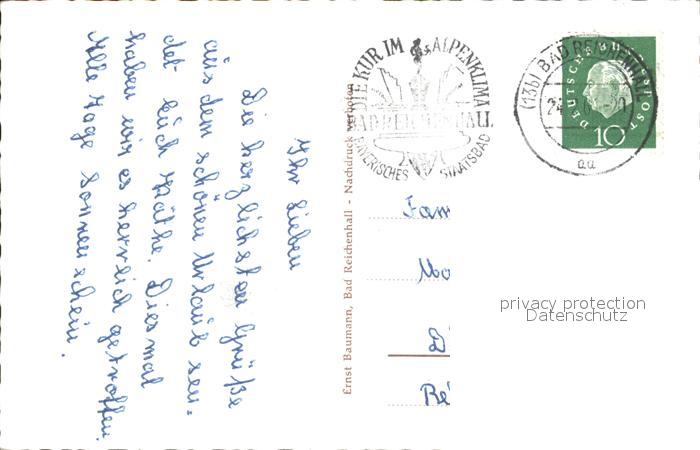 Ihr Lieben
Die herzlichsten Grüße
aus dem schönen Urlaub sen=
det Euch Käthe. Diesmal
haben wir es herrlich getroffen.
Alle Tage Sonnenschein.
Ernst Baumann, Bad Reichenhall - Nachdruck verboten
DIE KUR IM ALPENKLIMA
BAD REICHENHALL
BAYERISCHES STAATSBAD
(13b) BAD REICHENHALL
aa
DEUTSCHE BUNDESPOST
10
Fam
Mo
Ré
privacy protection
Datenschutz